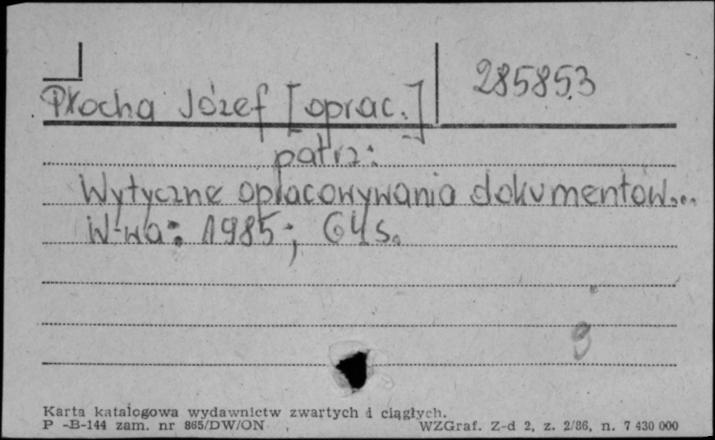 285853
Płocha Józef [oprac.]
patrz:
Wytyczne opracowywania dokumentów...
W-wa: 1985; 64 s.
g
Karta katalogowa wydawnictw zwartych i ciągłych.
P -B-144 zam. nr 865/DW/ON WZGraf. Z-d 2, z. 2/86, n. 7 430 000